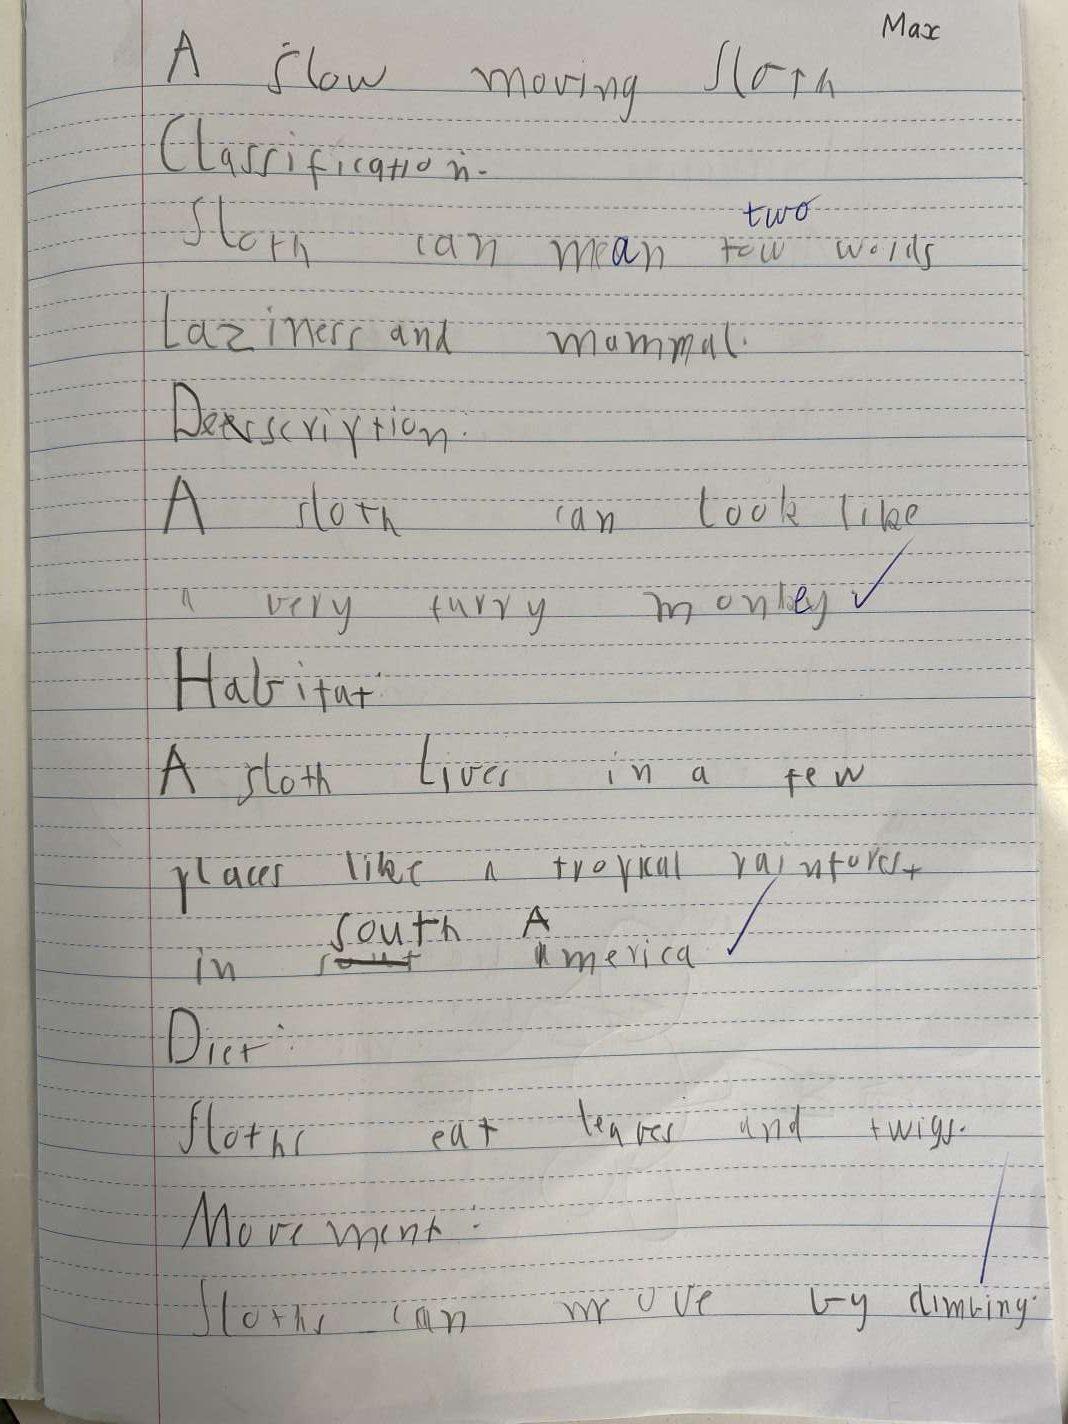 Max
A slow moving sloth
Classification.
Sloth can mean two tow words
Laziness and mammal.
Deerscription.
A sloth can look like
a very furry monkey
Habitat:
A sloth lives in a few
places like a tropical rainforest
south A
in sout america
Diet:
Sloths eat leaves and twigs.
Movement:
Sloths can move by climbing.